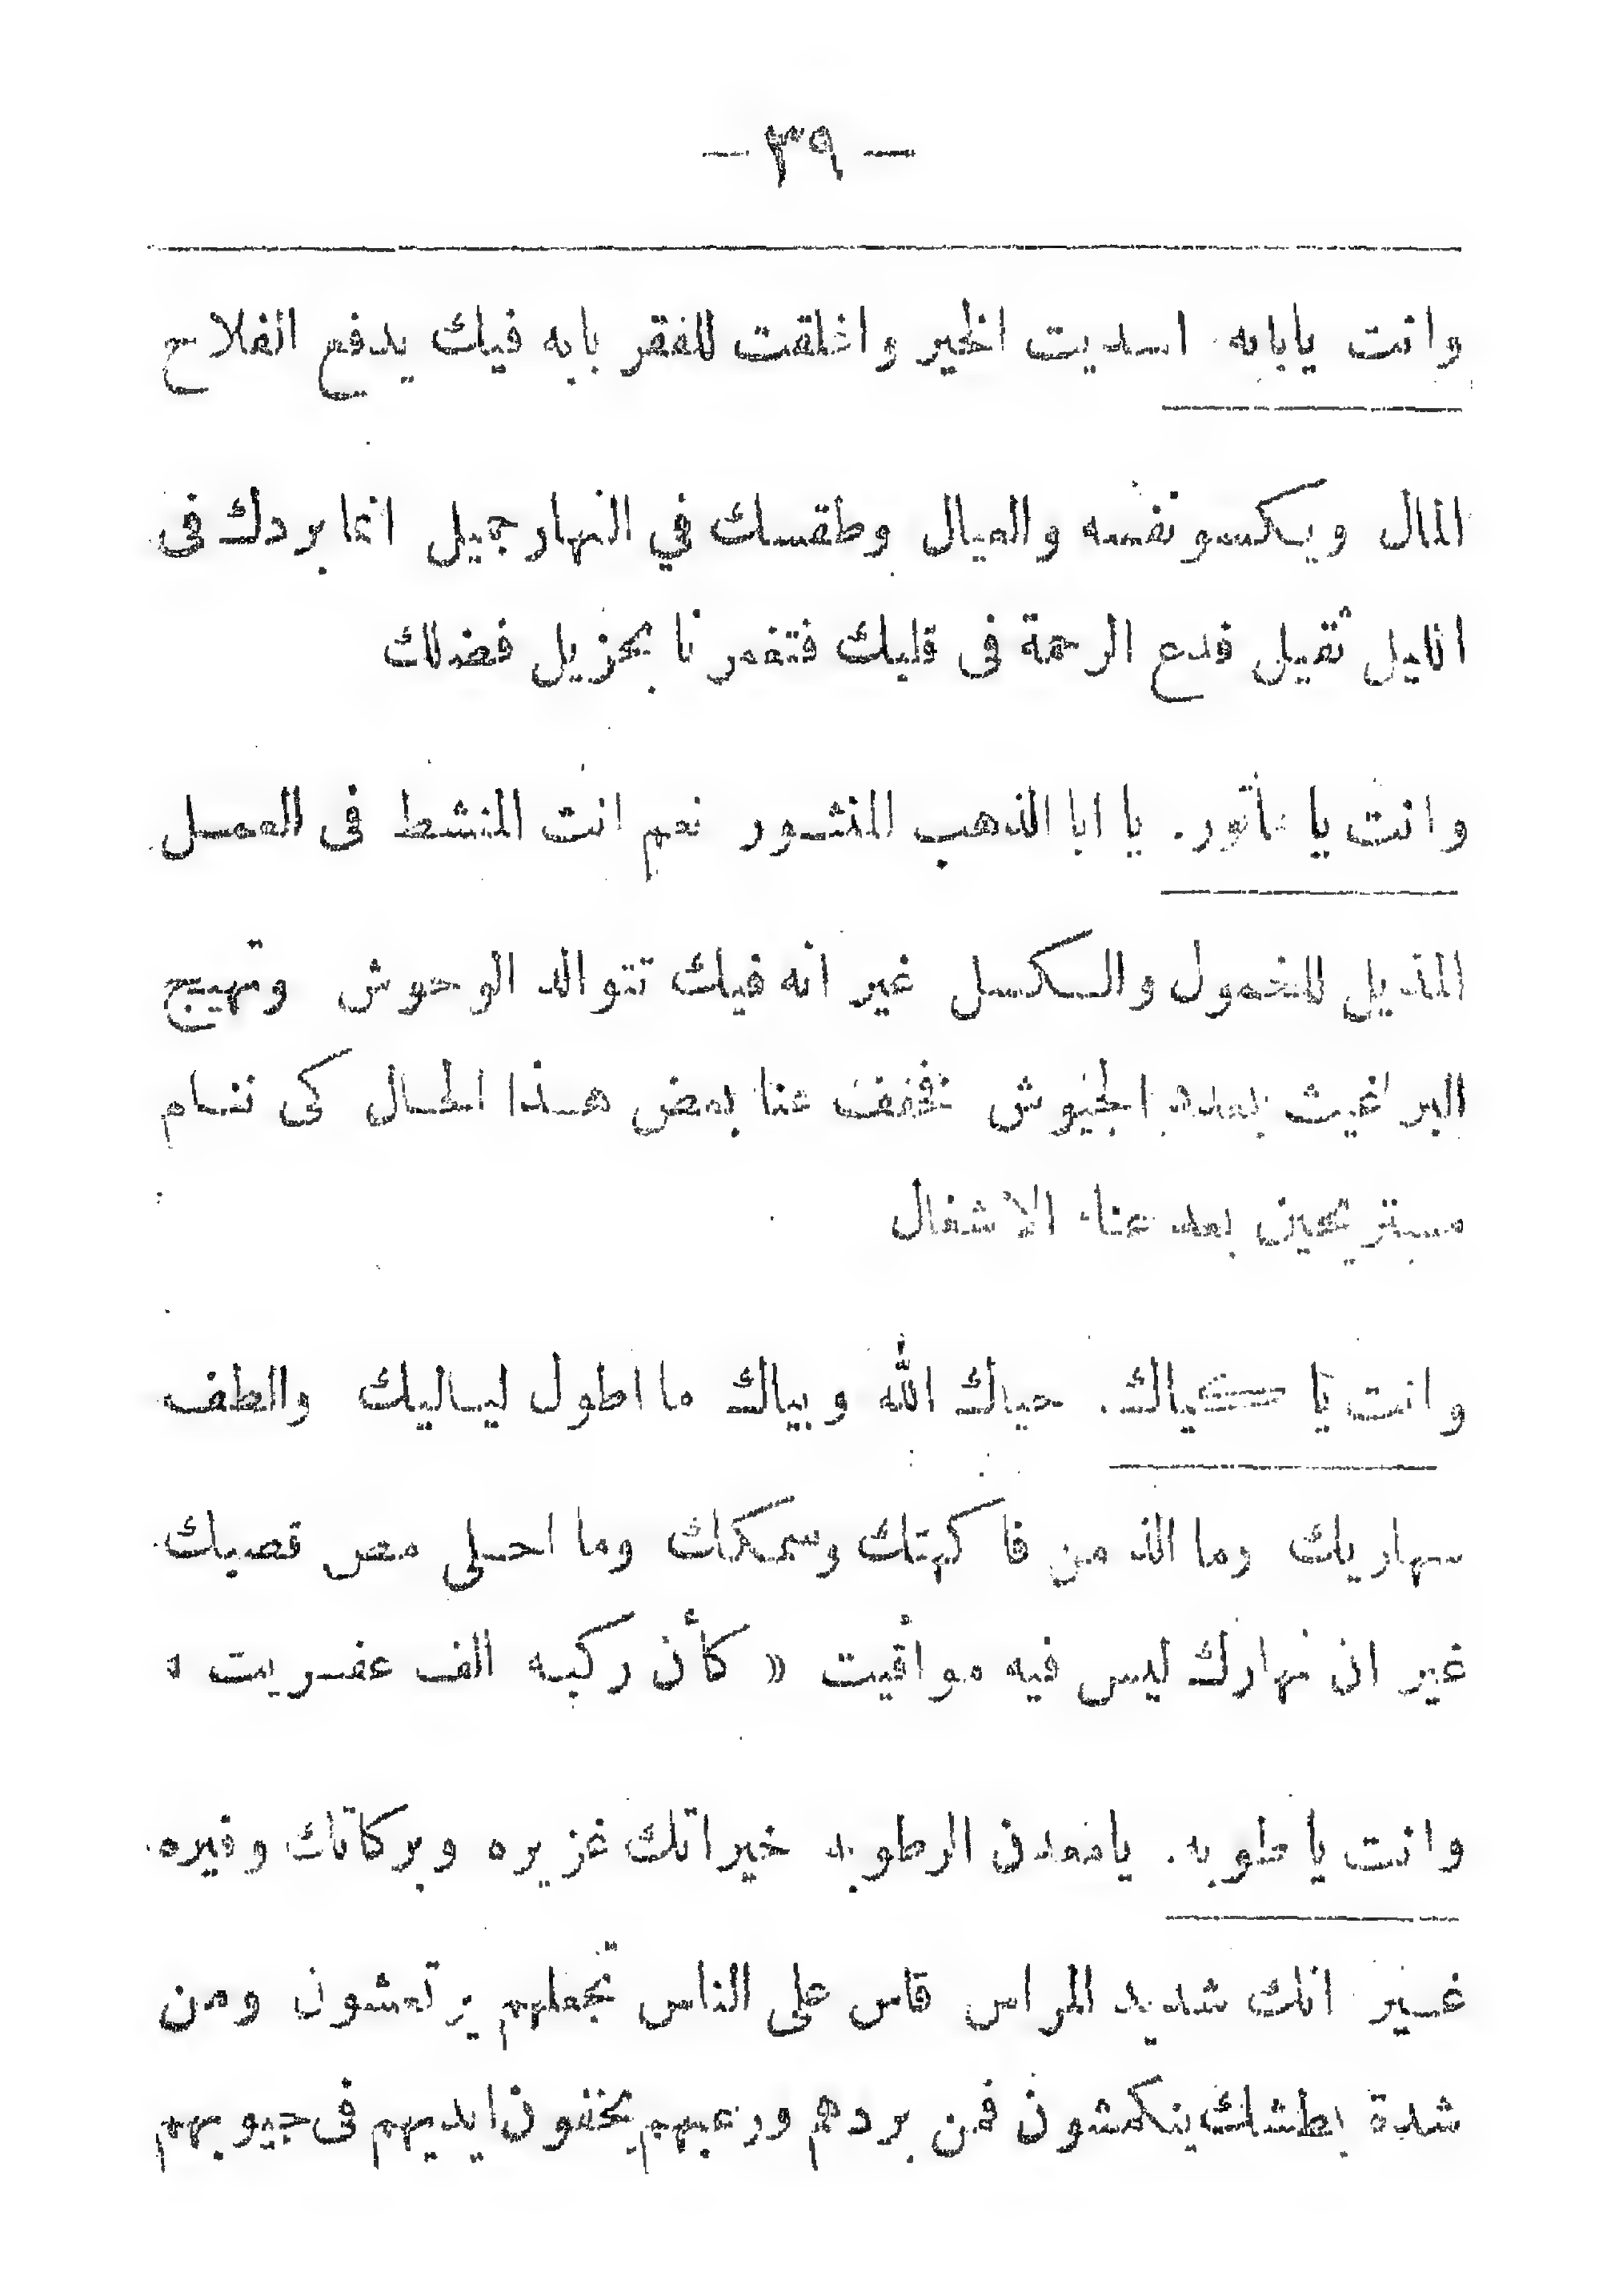 — ٣٩ —
وانت يابابه . اسديت الخير واغلقت للفقر بابه فيك يدفع الفلاح
المال ويكسو نفسه والعيال وطقسك في النهار جميل انما بردك فى
الليل ثقيل فدع الرحمة فى قلبك فتغمرنا بجزيل فضلك
وانت يا هاتور . يا ابا الذهب المنثور نعم انت المنشط فى العمل
المذيل للخمول والكسل غير انه فيك تتوالد الوحوش وتهيج
البراغيث بعدد الجيوش فخفف عنا بعض هذا الحال كى ننام
مستريحين بعد عناء الاشغال
وانت يا كياك . حياك الله وبياك ما اطول لياليك والطف
سهاريك وما الذ من فاكهتك وسمكك وما احلى مص قصبك
غير ان نهارك ليس فيه مواقيت « كأن ركبه الف عفريت »
وانت يا طوبه . يامعدن الرطوبه خيراتك غزيره وبركاتك وفيره
غير انك شديد المراس قاس على الناس تجعلهم يرتعشون ومن
شدة بطشك ينكمشون فمن بردهم ورعبهم يخفون ايديهم فى جيوبهم